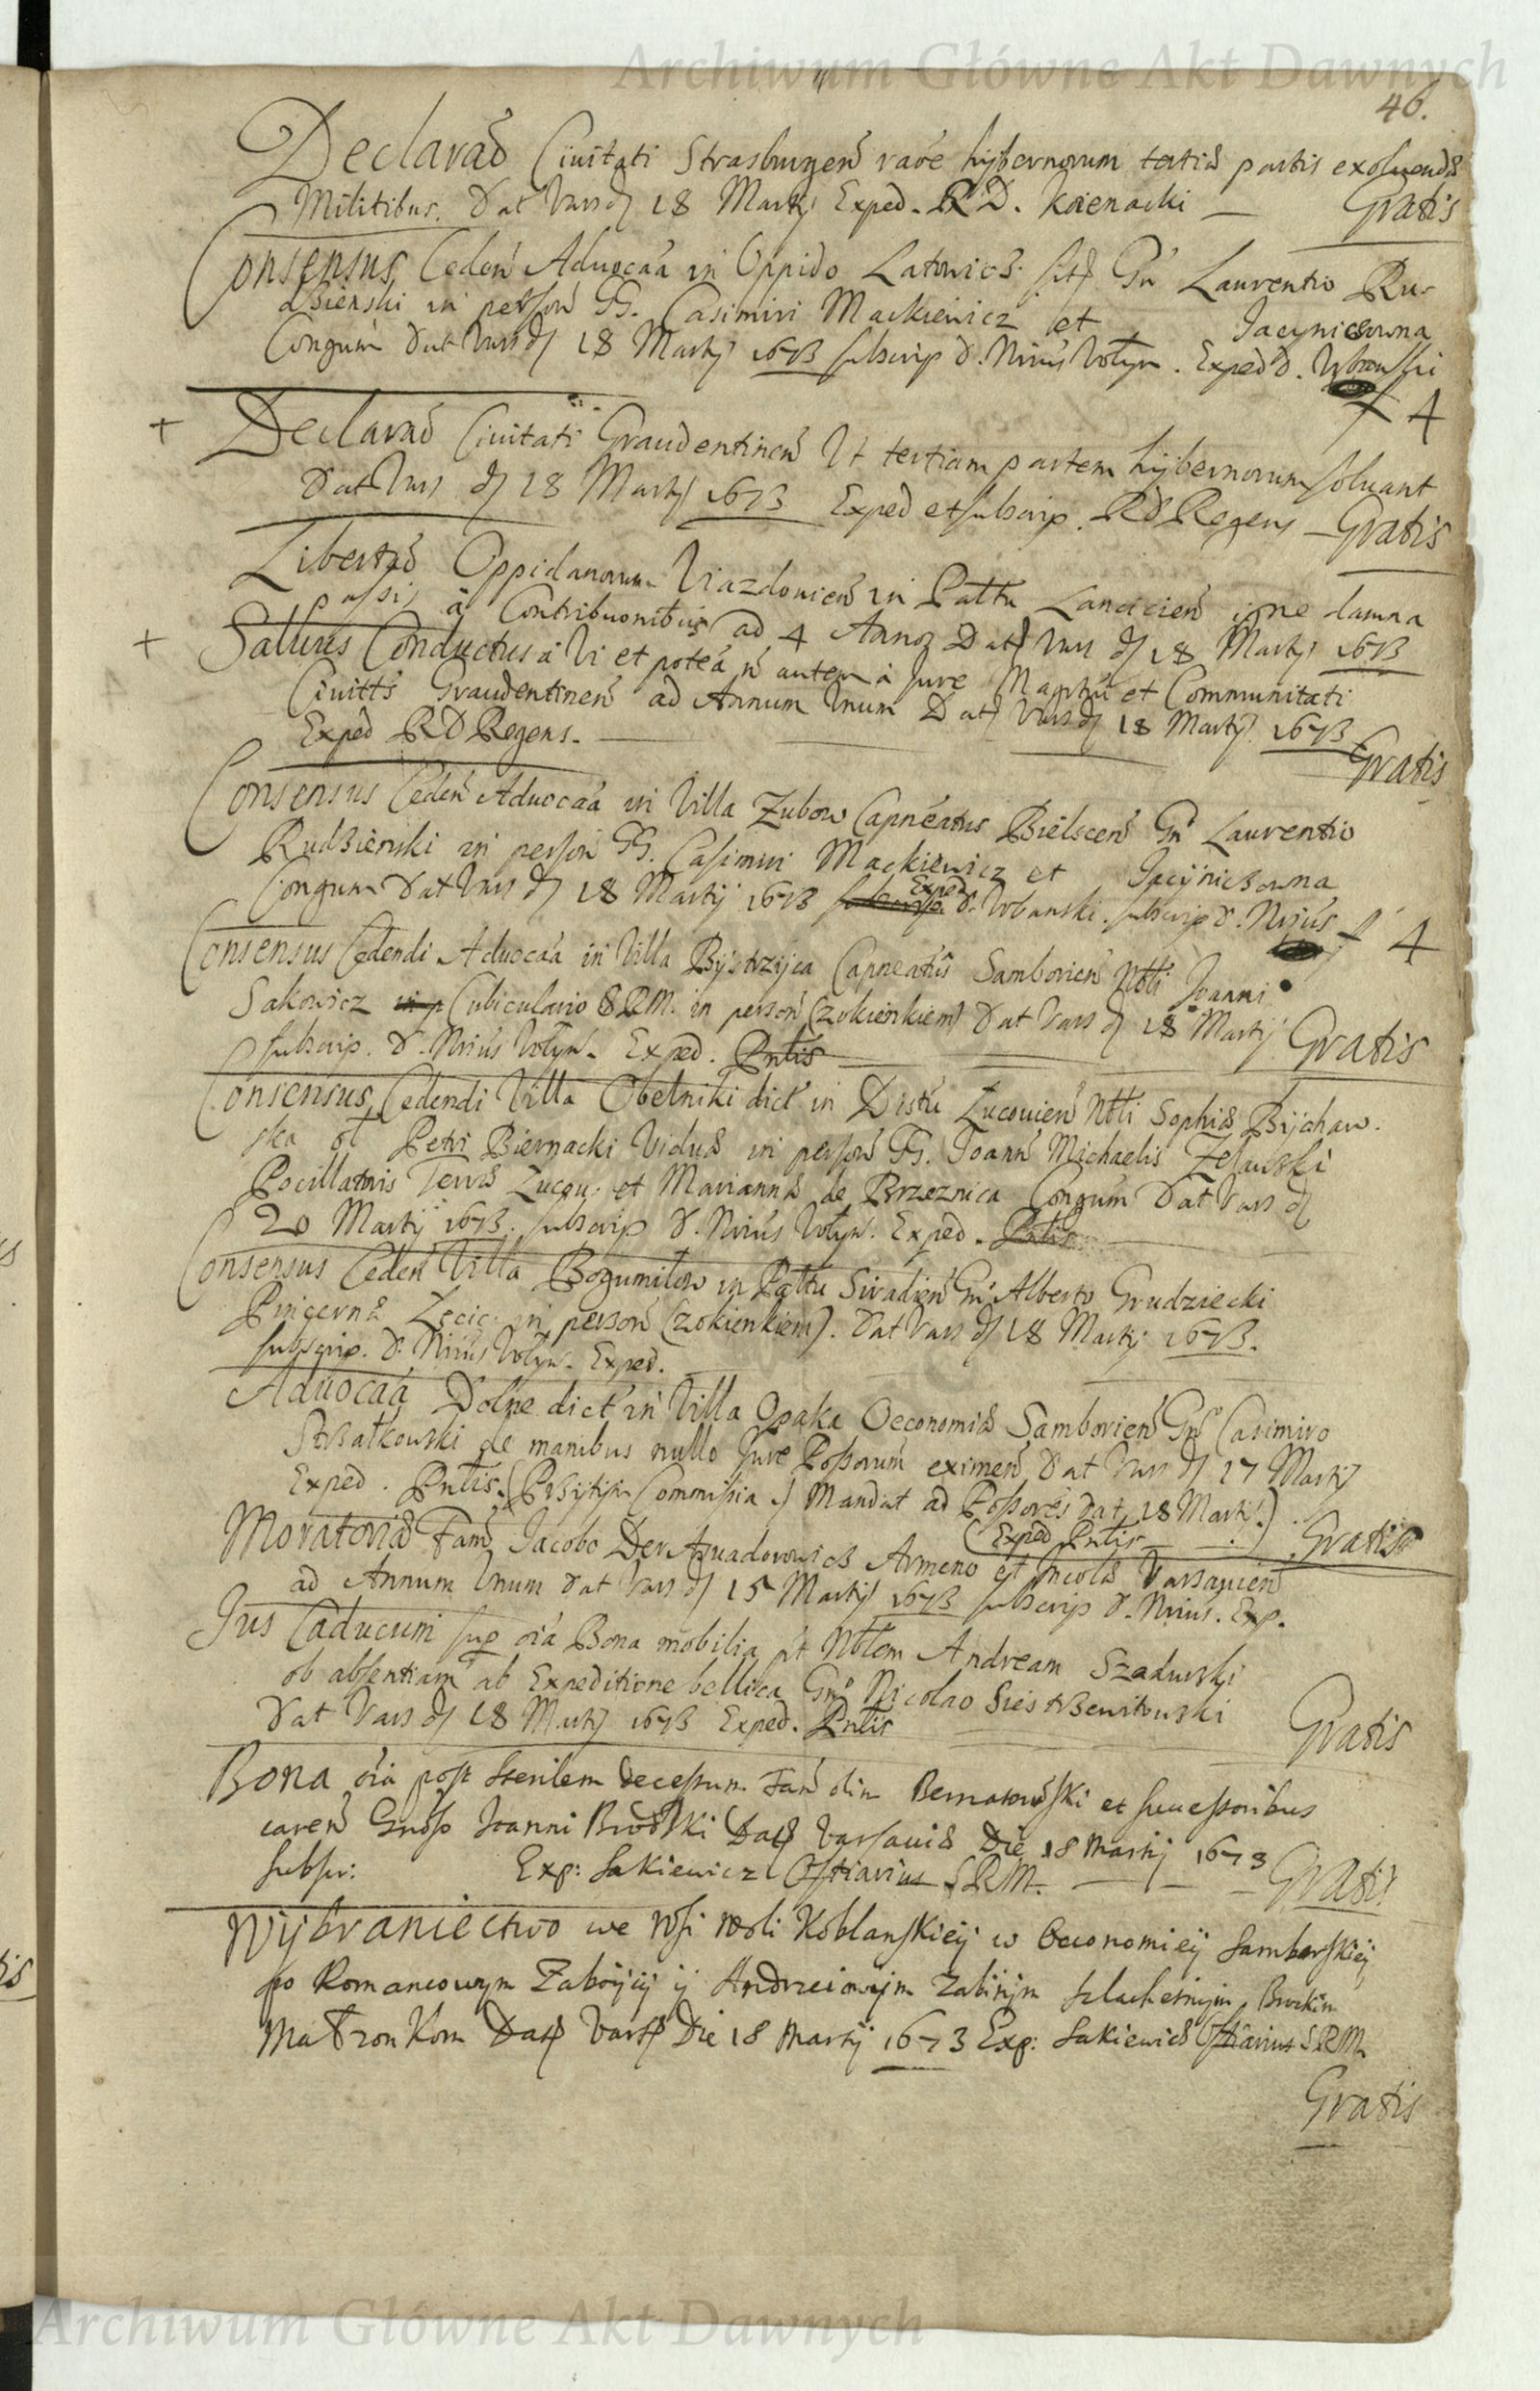 Archiwum Główne Akt Dawnych
46.
Declaraõ Civitati Strasburgeñ raõe hybernorum tertiæ partis exolvendæ
Militibus. Dat Vars d 18 Martij Exped. R D. Koienacki — Gratis
Consensus Cedeñ Advocãa in Oppido Latowicz. Gñ Laurentio Ru-
dzienski in persoñ GG. Casimiri Mackiewicz et Jacyniczowna
Congum Dat Vars d 18 Martij 1673 subscrip D. Nrius Wołyn. Exped D.
f 4
+ Declaraõ Civitati Graudentineñ Ut tertiam partem hybernorum solvant
Dat Vars d 18 Martij 1673 Exped et subscrip. RD Regens — Gratis
Libertaõ Oppidanorum Viazdovieñ in Pallu Lancicieñ igne damna
passis à Contributionibus ad 4 Annos Dat Vars d 18 Martij 1673
+ Salvus Conductus à Vi et potẽa ñ autem à Jure Magtui et Communitati
Civittis Graudentineñ ad Annum Unum Dat Vars d 18 Martij 1673
Exped RD Regens. — Gratis
Consensus Cedeñ Advocãa in Villa Zubow Capneatus Bielsceñ Gñ Laurentio
Rudzienski in persoñ GG. Casimiri Mackiewicz et Jacyniczowna
Congum Dat Vars d 18 Martij 1673 Exped D. Urbanski. subscrip D. Nrius
f 4
Consensus Cedendi Advocãa in Villa Bystrzyca Capneatus Samborieñ Nbli Joanni
Sakowicz Cubiculario SRM. in persoñ (z okienkiem) Dat Vars d 18 Martij
subscrip. D. Nrius Wołyn. Exped. Pntis — Gratis
Consensus Cedendi Villa Obelniki dict in Distu Lucovieñ Nbli Sophiæ Bychaw-
ska ol Petri Biernacki Viduæ in persoñ GG. Joañ Michaelis
Pocillatoris Terræ Lucov. et Mariannæ de Brzeznica Congum Dat Vars d
20 Martij 1673. subscrip D. Nrius Wołyn. Exped. Pntis
Consensus Cedeñ Villa Bogumiłow in Pallu Siradieñ Gñ Alberto Grudziecki
Pincernæ Lęcic. in persoñ (z okienkiem). Dat Vars d 18 Martij 1673.
subscrip. D. Nrius Wołyn. Exped.
Advocãa Dolne dict in Villa Opaka Oeconomiæ Samborieñ Gño Casimiro
Strzałkowski de manibus nullo Jure Possorum eximeñ Dat Vars d 17 Martij
Exped. Pntis. ( Commissia Mandat ad Possores Dat 18 Martij.)
(Exped Pntis — .) Gratis
Moratoriæ Fam Jacobo Armeno et Incolæ Varsavieñ
ad Annum Unum Dat Vars d 15 Martij 1673 subscrip D. Nrius. Exp.
Jus Caducum sup oia Bona mobilia pt Nblem Andream Szadurski
ob absentiam ab Expeditione bellica Gño Nicolao
Dat Vars d 18 Martij 1673 Exped. Pntis — Gratis
Bona oia post sterilem decessum Fam olim et successoribus
careñ Gnoso Joanni Dat Varsaviæ Die 18 Martij 1673
subscr: Exp: Sakiewicz Ostiarius SRM. — Gratis
Wybraniectwo we Wsi Woli Koblanskiey w Oeconomiey Samborskiey
po Romancowym y Andrzeiowym szlachetnym
Małzonkom Dat Vars Die 18 Martij 1673 Exp: Sakiewicz Ostiarius SRM
Gratis
Archiwum Główne Akt Dawnych